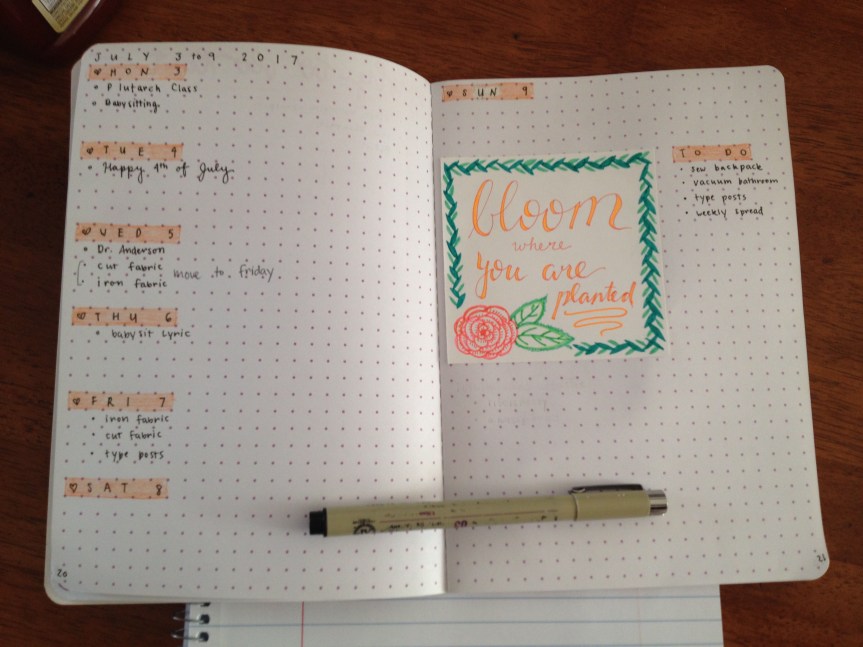 JULY 3 to 9 2017
MON 3
Plutarch Class
Babysitting
TUE 4
Happy 4th of July
WED 5
Dr. Anderson
cut fabric
iron fabric
move to friday
THU 6
babysit Lyric
FRI 7
iron fabric
cut fabric
type posts
SAT 8
20
SUN 9
bloom
where
you are
planted
TO DO
sew backpack
vacuum bathroom
type posts
weekly spread
21